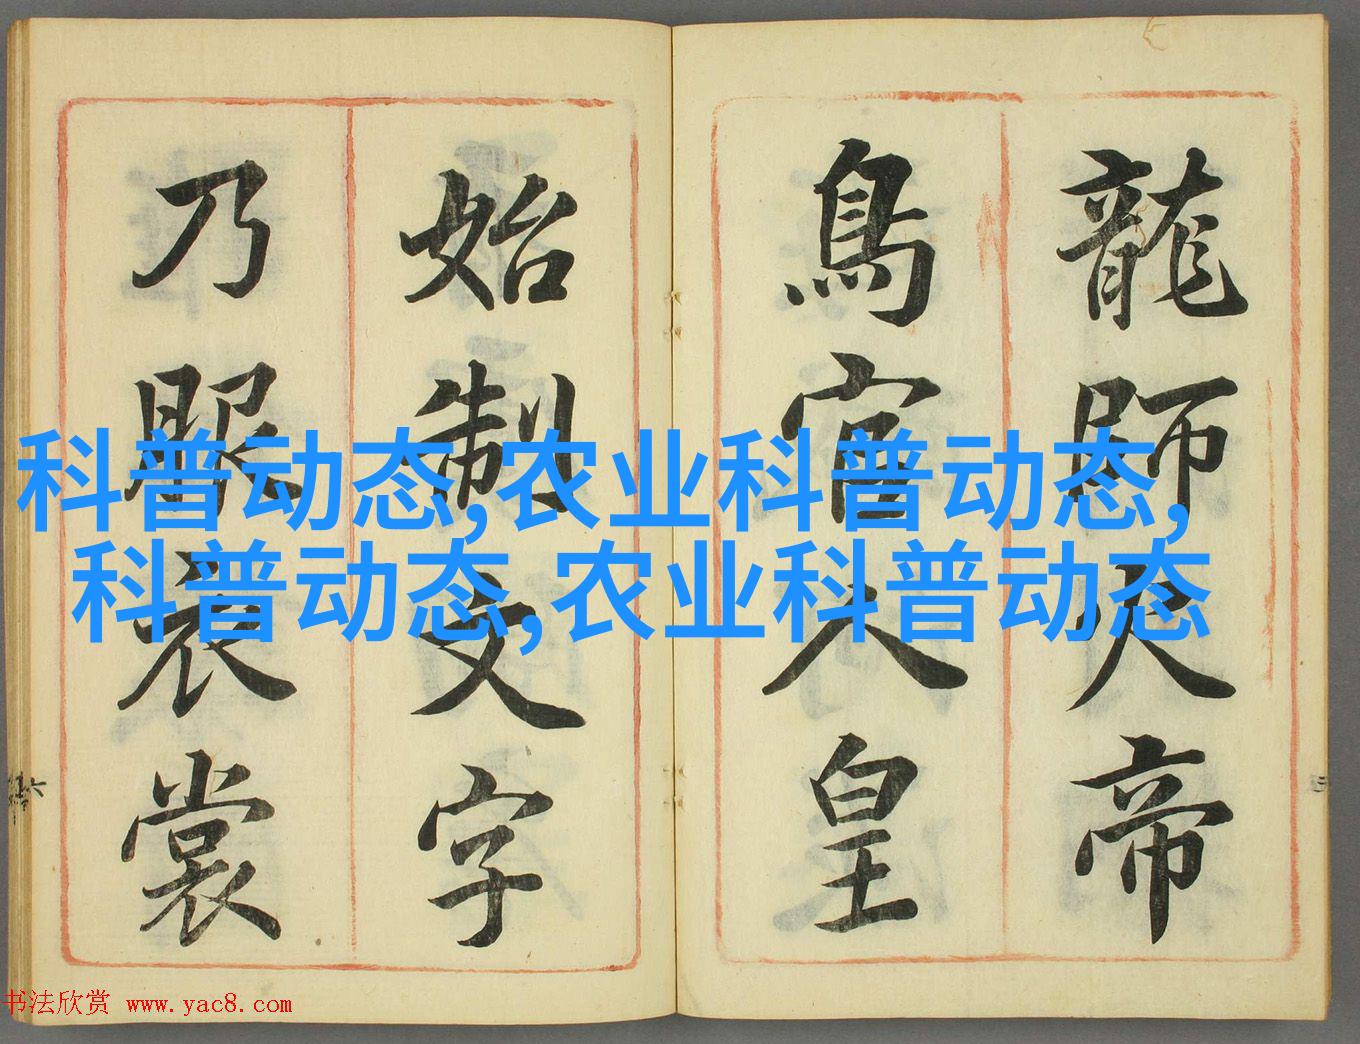 龍師火帝
鳥官人皇
始制文字
乃服衣裳
科普动态,农业科普动态,
科普动态,农业科普动态
书法欣赏 www.yac8.com